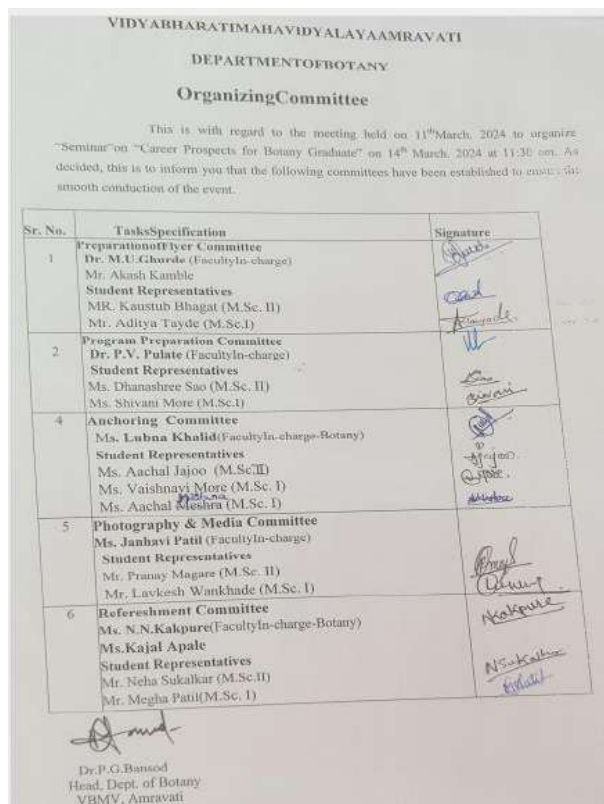 VIDYABHARATIMAHAVIDYALAYAAMRAVATI
DEPARTMENTOFBOTANY
OrganizingCommittee
This is with regard to the meeting held on 11thMarch. 2024 to organize
"Seminar"on "Career Prospects for Botany Graduate" on 14th March. 2024 at 11:30 am. As
decided, this is to inform you that the following committees have been established to ensure the
smooth conduction of the event.
Sr. No. TasksSpecification Signature
PreparationofFlyer Committee
1 Dr. M.U.Ghurde (FacultyIn-charge)
Mr. Akash Kamble
Student Representatives
MR. Kaustub Bhagat (M.Sc. II)
Mr. Aditya Tayde (M.Sc.I)
Program Preparation Committee
2 Dr. P.V. Pulate (FacultyIn-charge)
Student Representatives
Ms. Dhanashree Sao (M.Sc. II)
Ms. Shivani More (M.Sc.I)
4 Anchoring Committee
Ms. Lubna Khalid(FacultyIn-charge-Botany)
Student Representatives
Ms. Aachal Jajoo (M.Sc.II)
Ms. Vaishnavi More (M.Sc. I)
Ms. Aachal Meshra (M.Sc. I)
5 Photography & Media Committee
Ms. Janhavi Patil (FacultyIn-charge)
Student Representatives
Mr. Pranay Magare (M.Sc. II)
Mr. Lavkesh Wankhade (M.Sc. I)
6 Refereshment Committee
Ms. N.N.Kakpure(FacultyIn-charge-Botany) NKakpure
Ms.Kajal Apale
Student Representatives
Mr. Neha Sukalkar (M.Sc.II) NSukalkar
Mr. Megha Patil(M.Sc. I)
Dr.P.G.Bansod
Head, Dept. of Botany
VBMV, Amravati